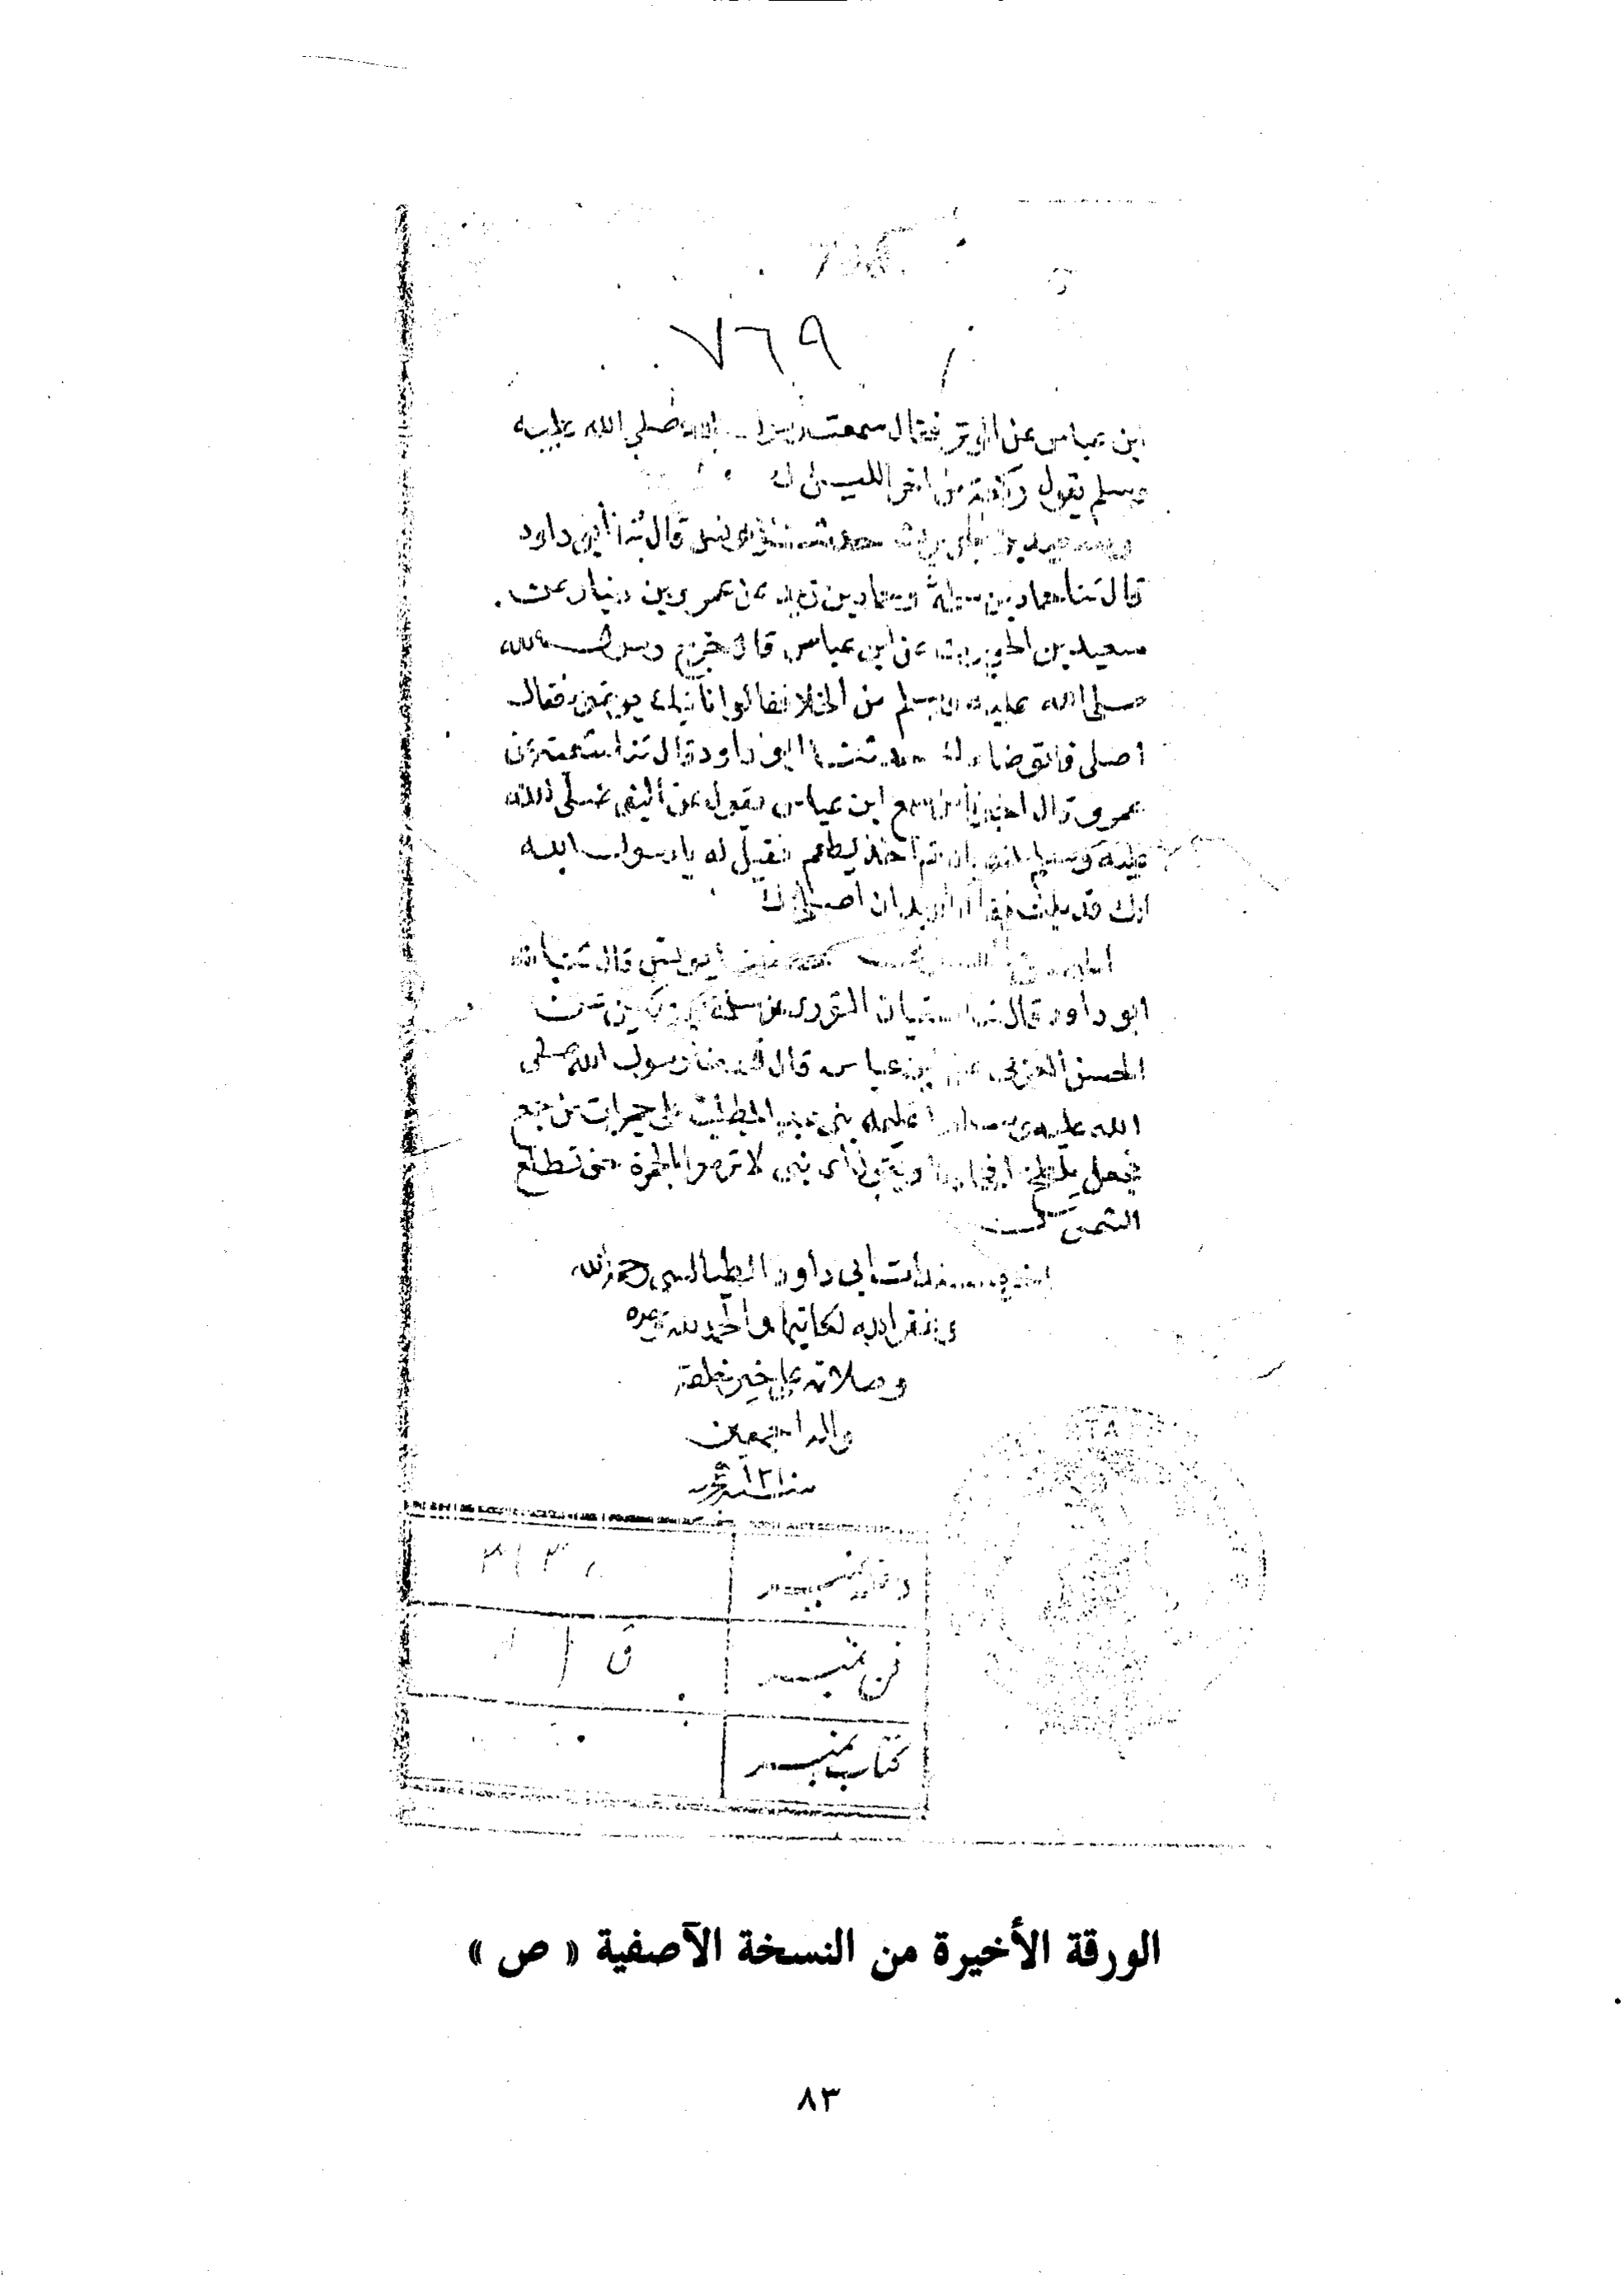 ٧٦٩
ابن عباس عن الوتر فقال سمعت رسول الله صلى الله عليه
وسلم يقول ركعة من اخر الليل
حدثنا يونس قال ثنا أبو داود
قال ثنا حماد بن سلمة وحماد بن زيد عن عمرو بن دينار عن
سعيد بن الحويرث عن ابن عباس قال خرج رسول الله
صلى الله عليه وسلم من الخلا فقالوا نأتيك بوضوء فقال
اصلي فاتوضا حدثنا ابو داود قال ثنا شعبة عن
عمرو قال اخبرني من سمع ابن عباس يقول عن النبي صلى الله
عليه وسلم انه بال ثم أخذ يطعم فقيل له يا رسول الله
انك قد بلت فقال اريد ان اصلي
الحسن يونس قال ثنا
ابو داود قال ثنا سفيان الثوري عن سلمة بن كهيل عن
الحسن العرني عن ابن عباس قال قدمنا رسول الله صلى
الله عليه وسلم اغيلمة بني عبد المطلب على حمرات من جمع
فجعل يلطخ افخاذنا ويقول أي بني لا ترموا الجمرة حتى تطلع
الشمس
مسندات ابي داود الطيالسي رحمه الله
وغفر الله لكاتبها والحمد لله وحده
وصلاته على خير خلقه
واله اجمعين
فن نمبر
كتاب نمبر
الورقة الأخيرة من النسخة الآصفية « ص »
٨٣